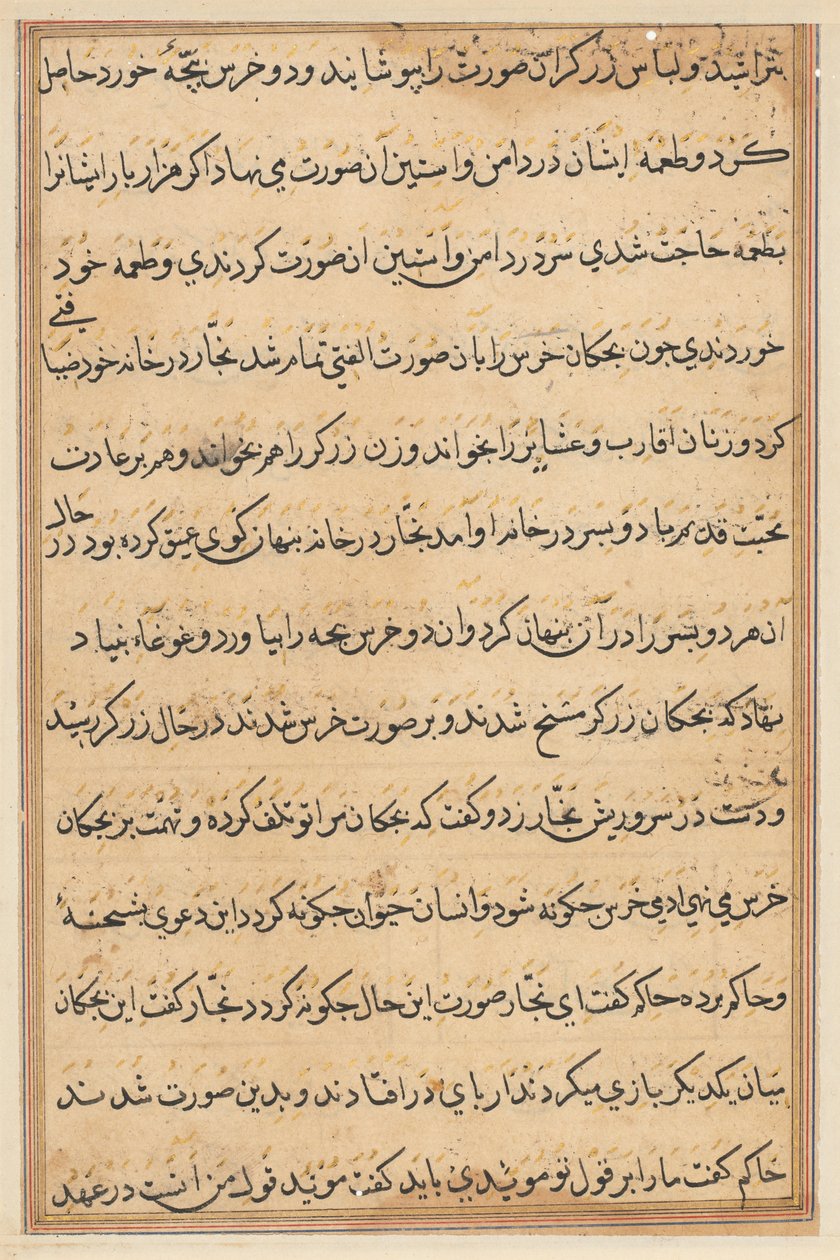 بتراشید و لباس زرکر ان صورت را بپوشانید و دو خرس بچّهٔ خورد حاصل
کرد و طعمه ایشان در دامن و استین آن صورت می نهاد اکر هزار بار ایشانرا
بطعمه حاجت شدي سر در دامن و استین ان صورت کردندي و طعمه خود
خوردندي جون بجکان خرس را بان صورت الفتي تمام شد نجّار در خانه خود ضیا
فتے
کرد و زنان اقارب و عشایر را بخواند و زن زرکر را هم بخواند و هم بر عادت
محبّت قدیم با دو بسر در خانه او امد نجّار در خانه بنهان کوی عمیق کرده بود در
حال
آن هر دو بسر را در آن بنهان کرد و ان دو خرس بجه را بیاورد و غوغاء بنیاد
نهاد که بجکان زرکر مسخ شدند و بر صورت خرس شدند در حال زرکر رسید
و دست در سر و ریش نجّار زد و کفت که بجکان مرا تو تلف کرده و تهمت بر بجکان
خرس می نهی ادمی خرس جکونه شود و انسان حیوان جکونه کردد این دعوي بشحنهٔ
و حاکم برده حاکم کفت اي نجّار صورت این حال جکونه کردد نجّار کفت این بجکان
میان یکدیکر بازي میکردند از باي در افتادند و بدین صورت شدند
حاکم کفت ما را بر قول تو مویّدي باید کفت موید قول من انست در عهد